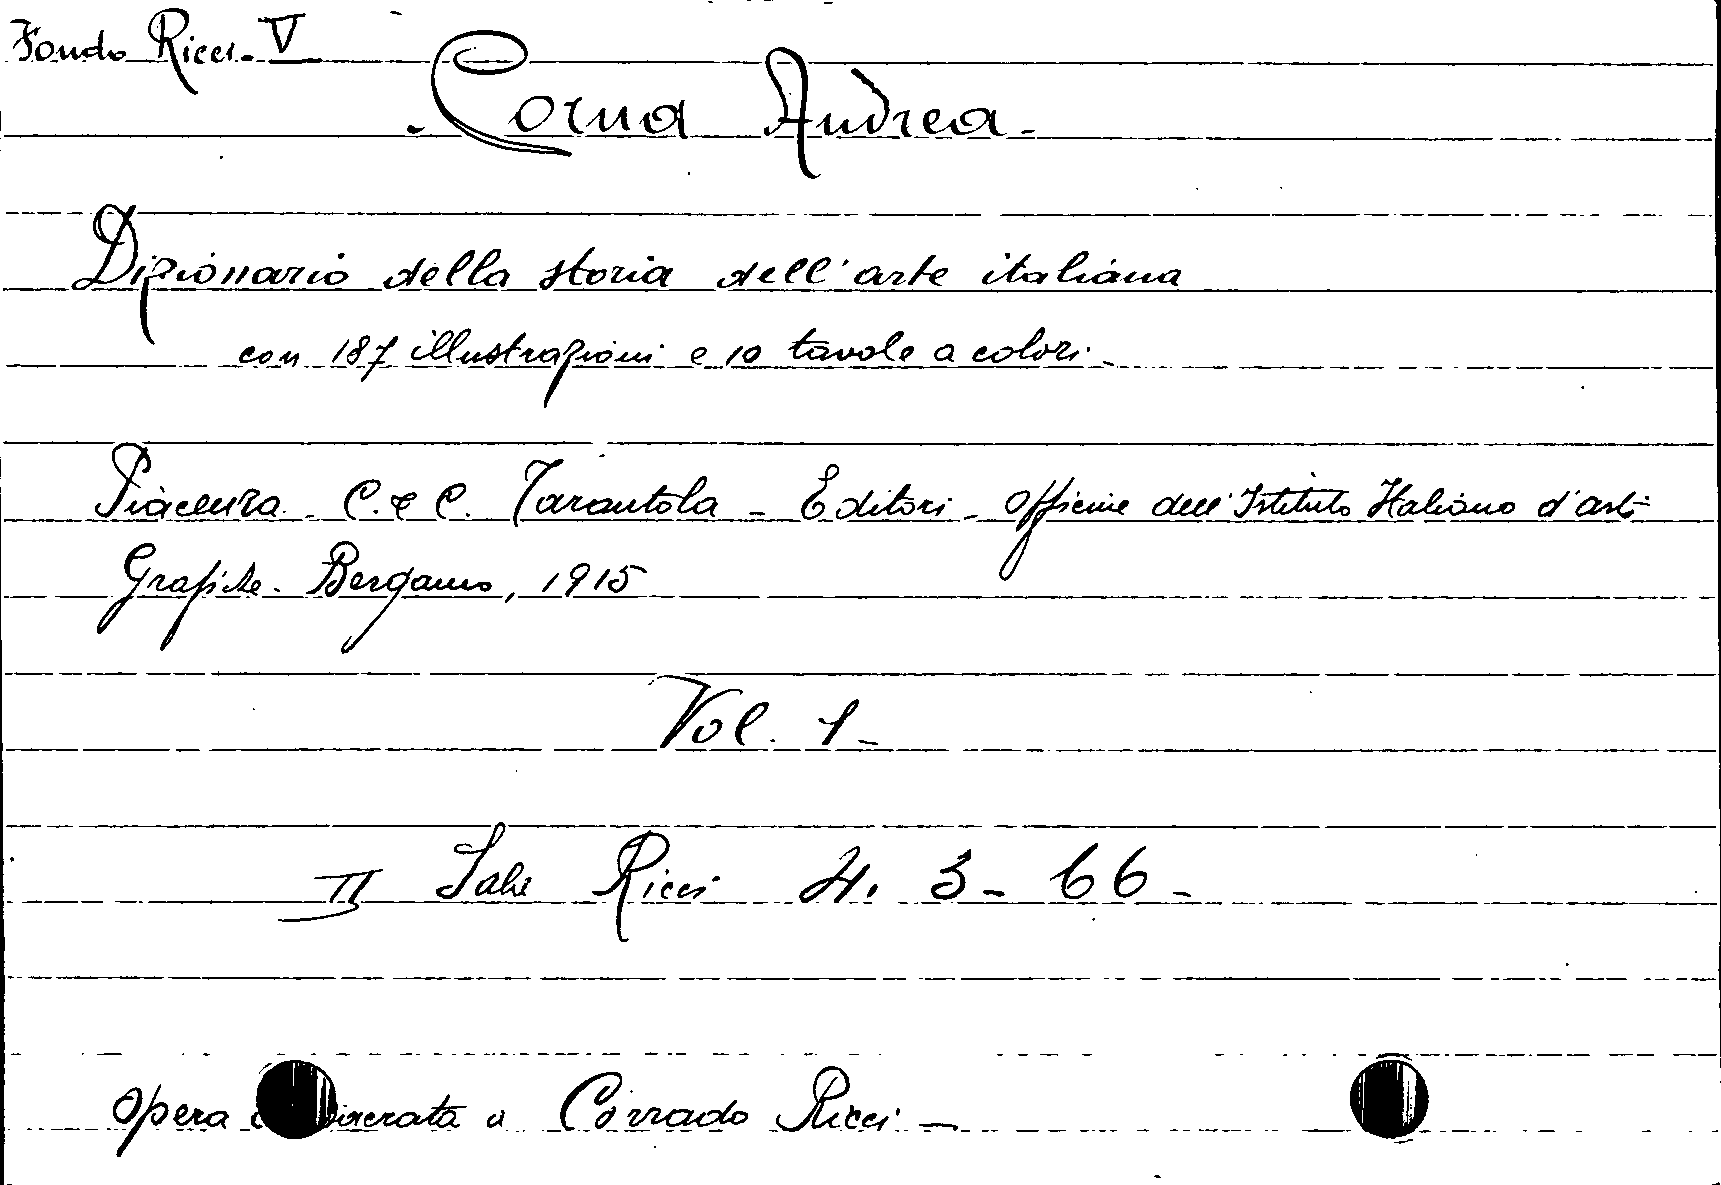 Fondo Ricci - V
Corna Andrea -
Dizionario della storia dell'arte italiana
con 187 illustrazioni e 10 tavole a colori -
Piacenza - C. & C. Tarantola - Editori - Officine dell'Istituto Italiano d'arti
Grafiche - Bergamo, 1915
Vol. 1 -
II Sala Ricci 4. 3 - 66 -
Opera a Corrado Ricci -